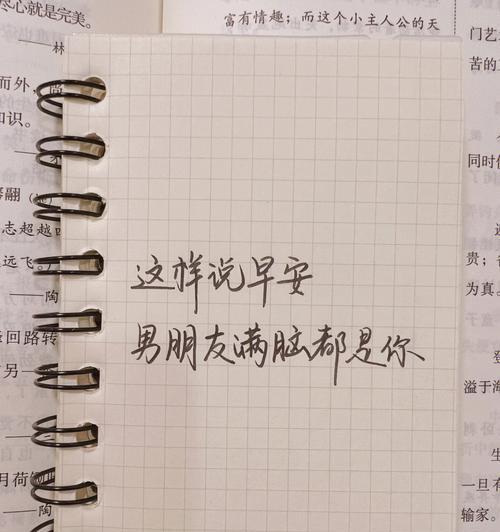 尽心就是完美。
——林
富有情趣；而这个小主人公的天
门艺
苦的
而外，
知识。
同时
这样说早安
男朋友满脑都是你
志超越
远飞。
——陶
贵；
为真。
峰回路转
另
登
溢于海
月荷
生
一旦有
输家。